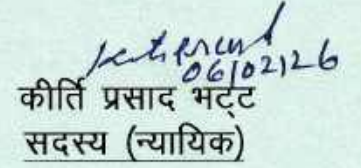 06/02/26
कीर्ति प्रसाद भट्ट
सदस्य (न्यायिक)